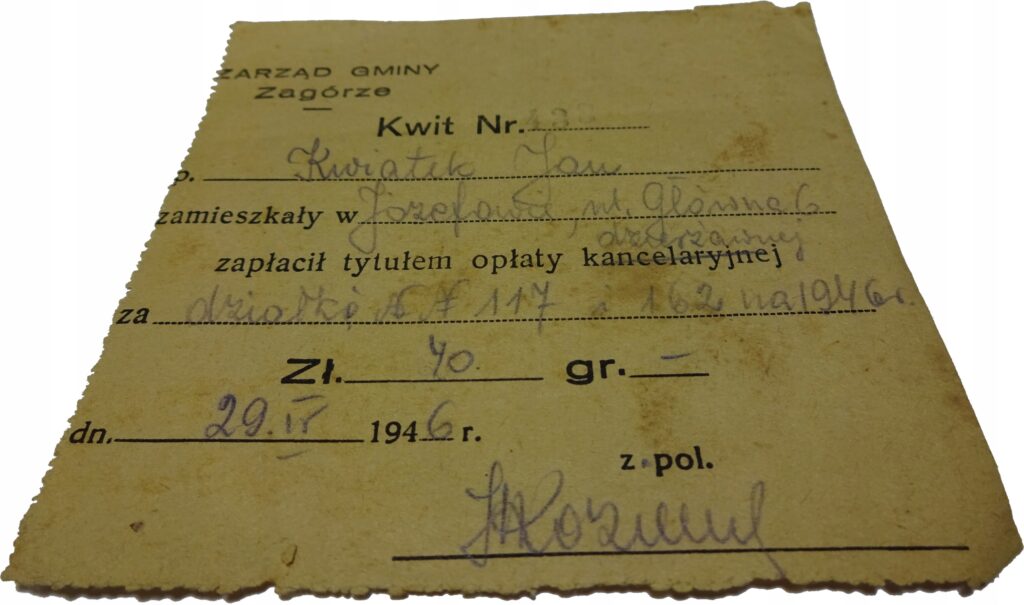 ZARZĄD GMINY
Zagórze
Kwit Nr.
p. Kwiatek Jan
zamieszkały w Józefowie, ul. Główna 6
dzierżawnej
zapłacił tytułem opłaty kancelaryjnej
za działki N N 117 i 162 na 1946 r.
Zł. 40. gr. —
dn. 29. IV 1946 r.
z pol.